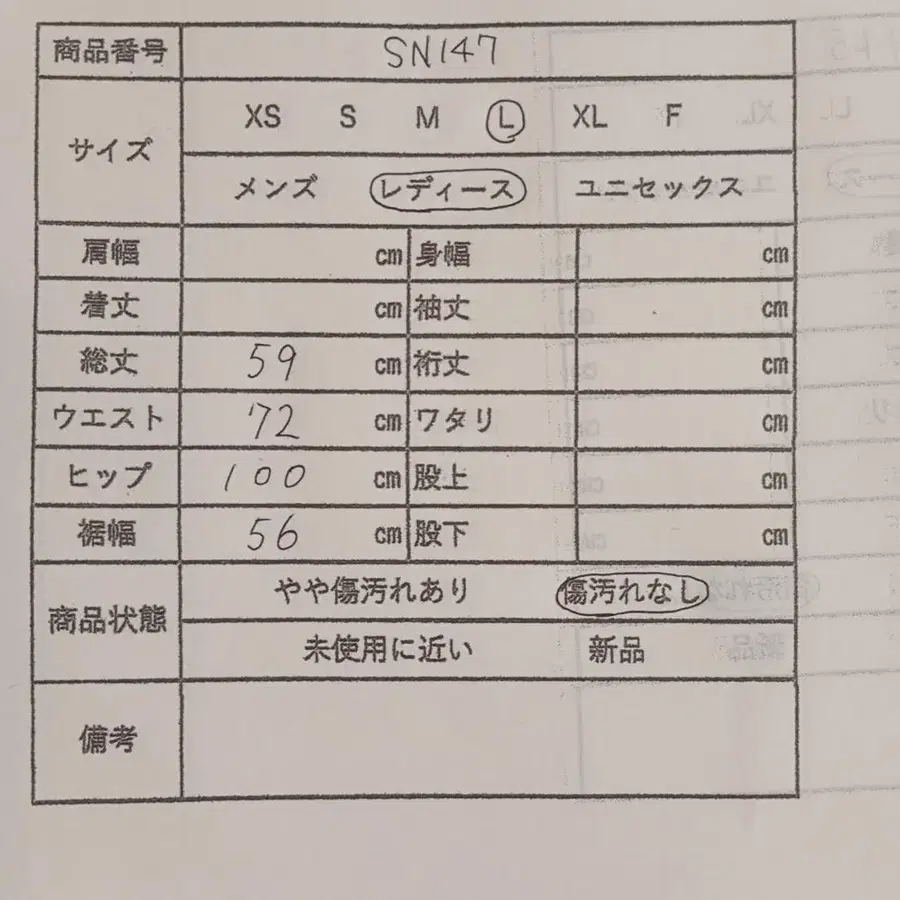 商品番号 SN147
サイズ XS S M L XL F
メンズ レディース ユニセックス
肩幅 cm 身幅 cm
着丈 cm 袖丈 cm
総丈 59 cm 裄丈 cm
ウエスト 72 cm ワタリ cm
ヒップ 100 cm 股上 cm
裾幅 56 cm 股下 cm
商品状態 やや傷汚れあり 傷汚れなし
未使用に近い 新品
備考